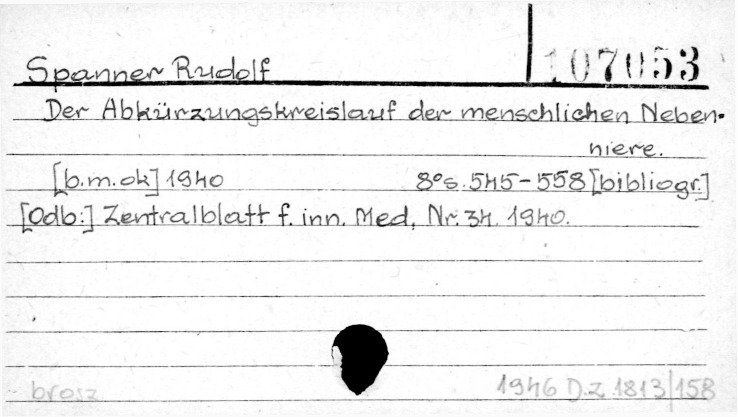 Spanner Rudolf 107053
Der Abkürzungskreislauf der menschlichen Neben-
niere.
[b.m.ok] 1940 8°s. 545-558 [bibliogr.]
[Odb:] Zentralblatt f. inn. Med, Nr. 34. 1940.
brosz 1946 D.z. 1813/158